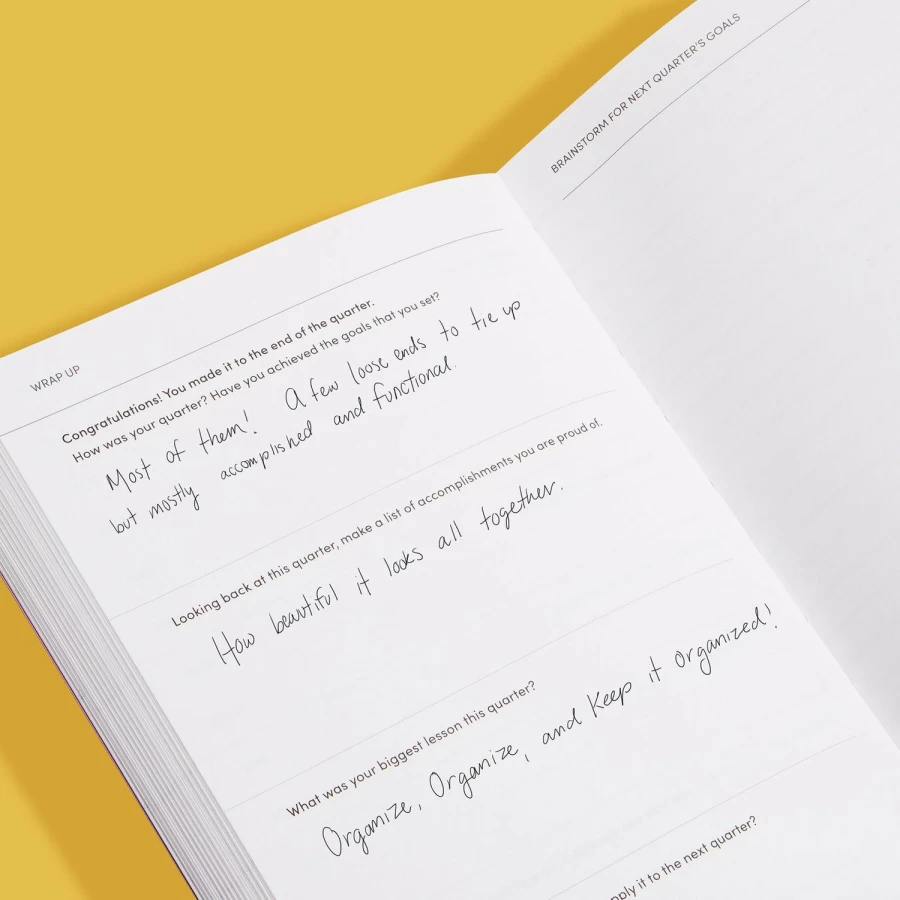 WRAP UP
Congratulations! You made it to the end of the quarter.
How was your quarter? Have you achieved the goals that you set?
Most of them! A few loose ends to tie up
but mostly accomplished and functional.
Looking back at this quarter, make a list of accomplishments you are proud of.
How beautiful it looks all together.
What was your biggest lesson this quarter?
Organize, Organize, and Keep it organized!
it to the next quarter?
BRAINSTORM FOR NEXT QUARTER'S GOALS